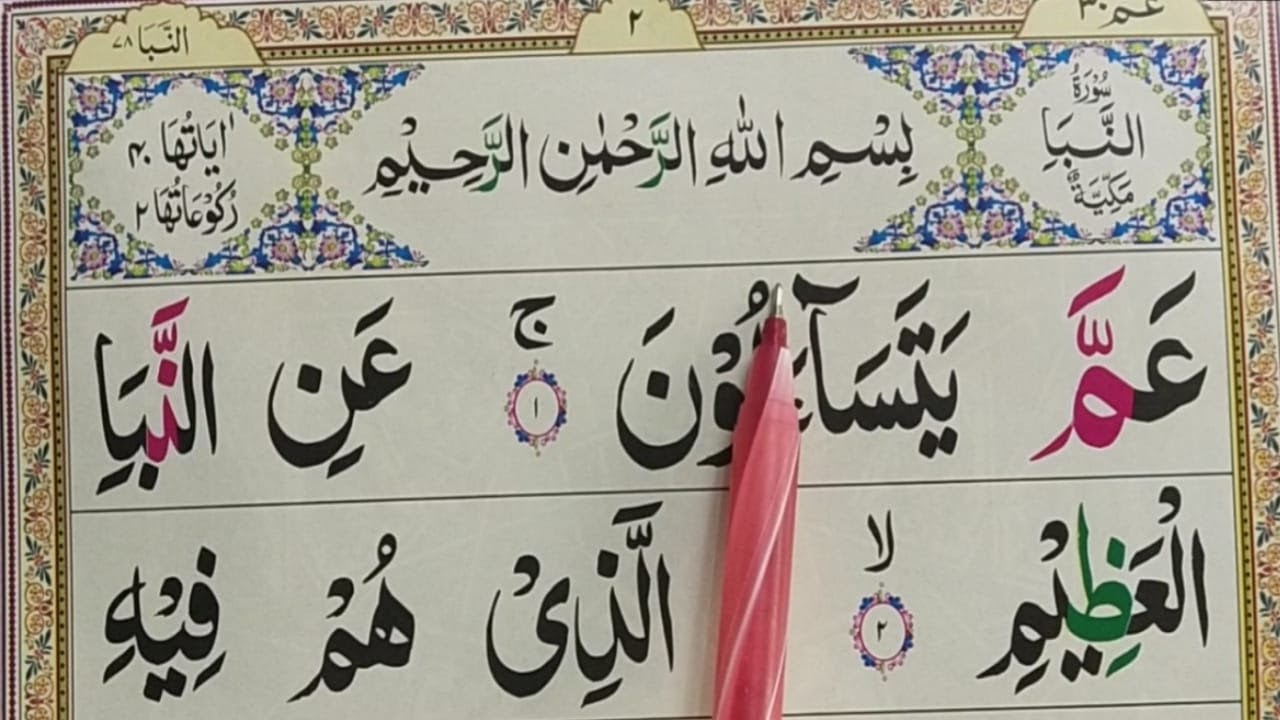 عم ٣٠
٢
النبا ٧٨
سُوْرَةُ
النَّبَاِ
مَكِّيَّةٌ
بِسْمِ اللّٰهِ الرَّحْمٰنِ الرَّحِيْمِ
اٰيَاتُهَا ٤٠
رُكُوْعَاتُهَا ٢
عَمَّ يَتَسَآءَلُوْنَ ۚ ١ عَنِ النَّبَاِ
الْعَظِيْمِ ۙ ٢ الَّذِيْ هُمْ فِيْهِ